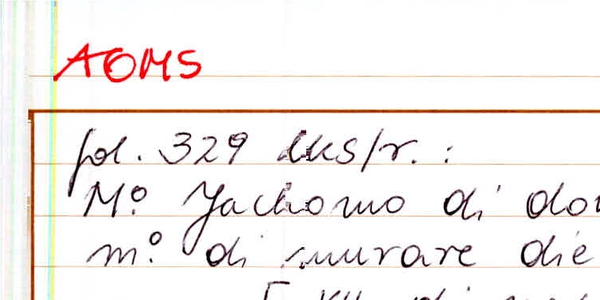 AOMS
fol. 329 lks/r. :
Mº Jachomo di do
mº. di murare die
di